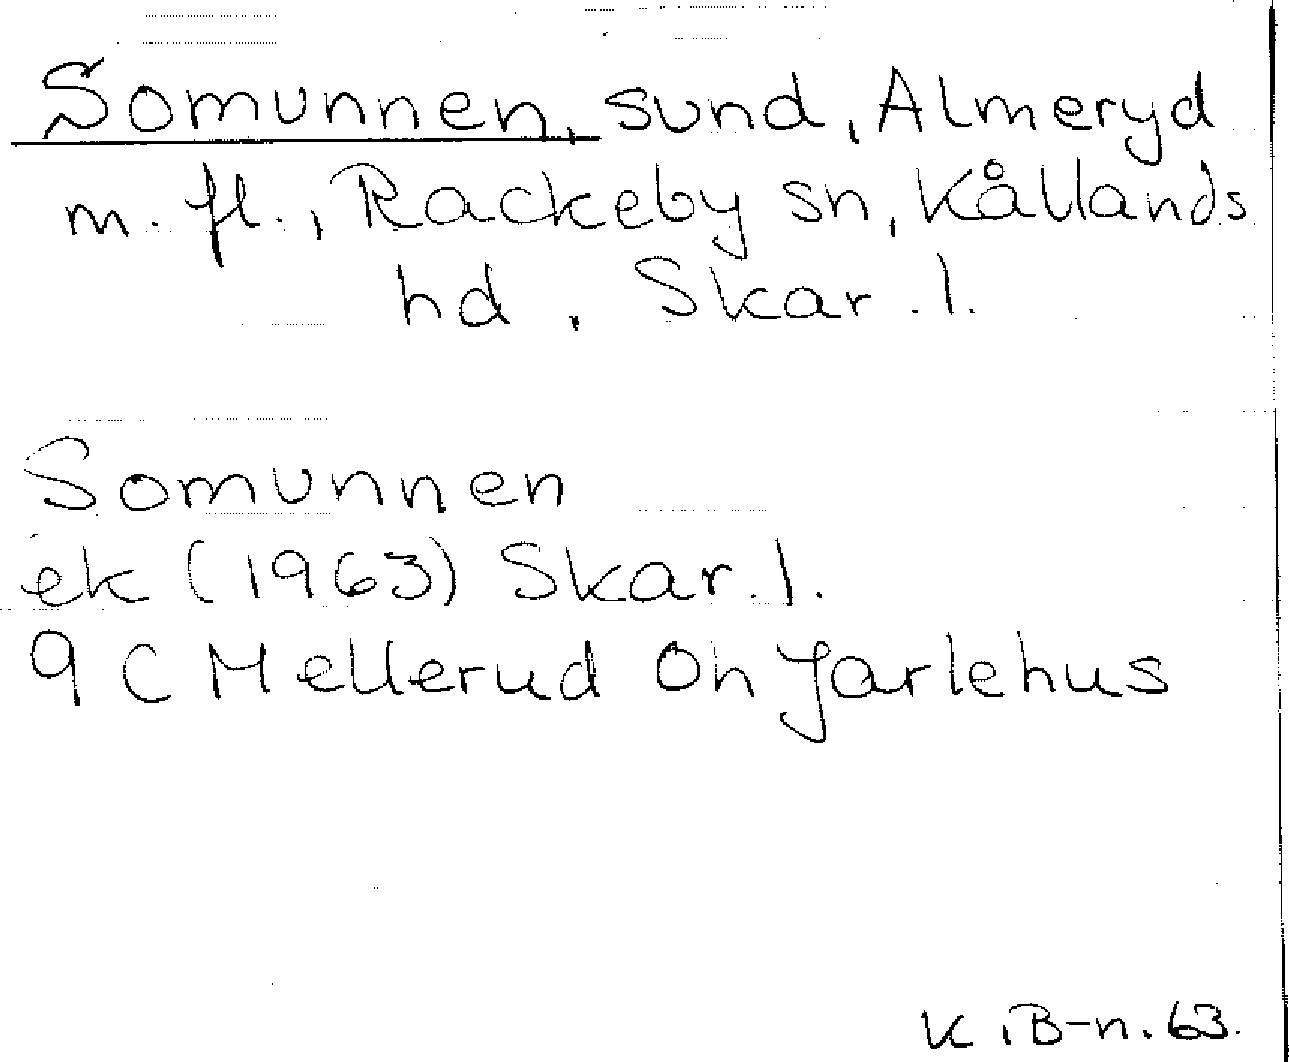 Somunnen, sund, Almeryd
m. fl., Rackeby sn, Kållands
hd. Skar. l.
Somunnen
ek (1963) Skar. l.
9 C Mellerud Oh Jarlehus
K. B-n. 63.